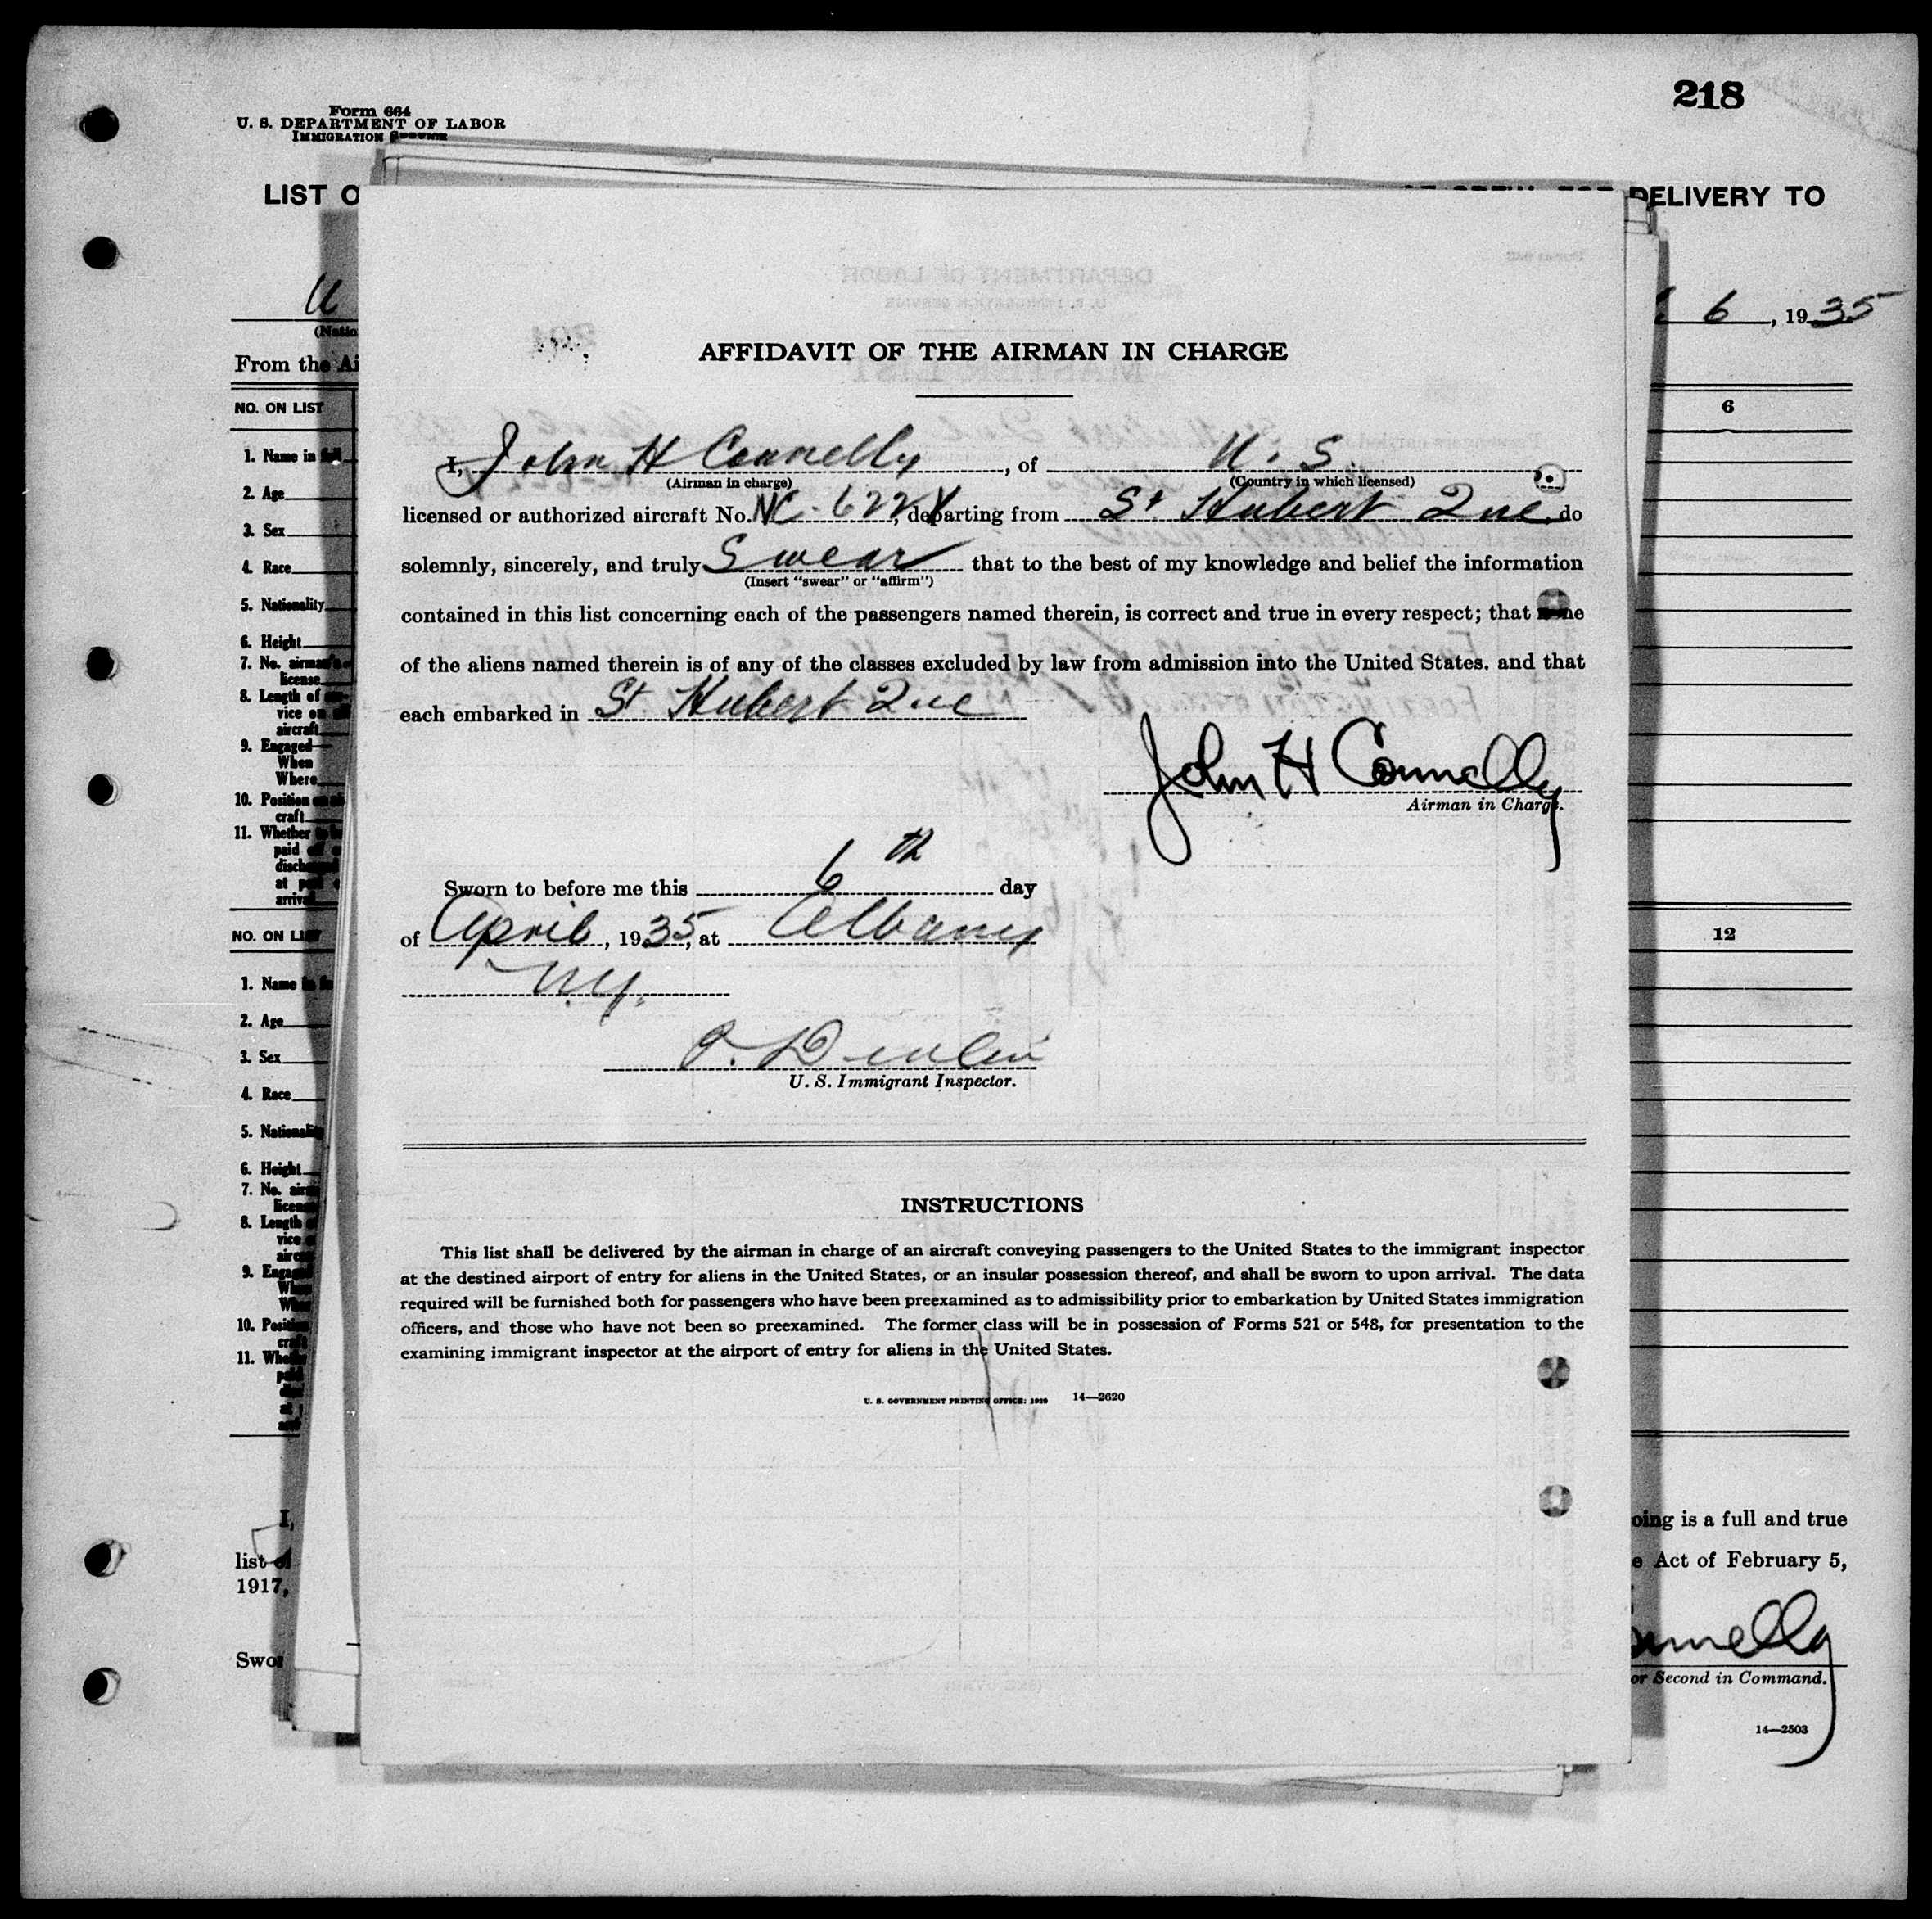 Form 664
U. S. DEPARTMENT OF LABOR
IMMIGRATION SERVICE
218
LIST O
DELIVERY TO
U
(Natio
6, 1935
From the Ai
NO. ON LIST
6
1. Name in full
2. Age
3. Sex
4. Race
5. Nationality
6. Height
7. No. airman's
license
8. Length of
vice on
aircraft
9. Engaged—
When
Where
10. Position
craft
11. Whether
paid
at
arrival
NO. ON LIST
12
1. Name
2. Age
3. Sex
4. Race
5. Nationality
6. Height
7. No.
8. Length
vice
9.
10. Position
11.
I,
list of
1917,
Swor
AFFIDAVIT OF THE AIRMAN IN CHARGE
I, John H Connelly, of U. S.
(Airman in charge) (Country in which licensed)
licensed or authorized aircraft No. NC-622Y, departing from St Hubert Que, do
solemnly, sincerely, and truly Swear that to the best of my knowledge and belief the information
(Insert "swear" or "affirm")
contained in this list concerning each of the passengers named therein, is correct and true in every respect; that none
of the aliens named therein is of any of the classes excluded by law from admission into the United States. and that
each embarked in St Hubert Que
John H Connelly
Airman in Charge.
Sworn to before me this 6th day
of April, 1935, at Albany
N.Y.
U. S. Immigrant Inspector.
INSTRUCTIONS
This list shall be delivered by the airman in charge of an aircraft conveying passengers to the United States to the immigrant inspector
at the destined airport of entry for aliens in the United States, or an insular possession thereof, and shall be sworn to upon arrival. The data
required will be furnished both for passengers who have been preexamined as to admissibility prior to embarkation by United States immigration
officers, and those who have not been so preexamined. The former class will be in possession of Forms 521 or 548, for presentation to the
examining immigrant inspector at the airport of entry for aliens in the United States.
U. S. GOVERNMENT PRINTING OFFICE: 14—2620
oing is a full and true
e Act of February 5,
nnelly
or Second in Command.
14—2503